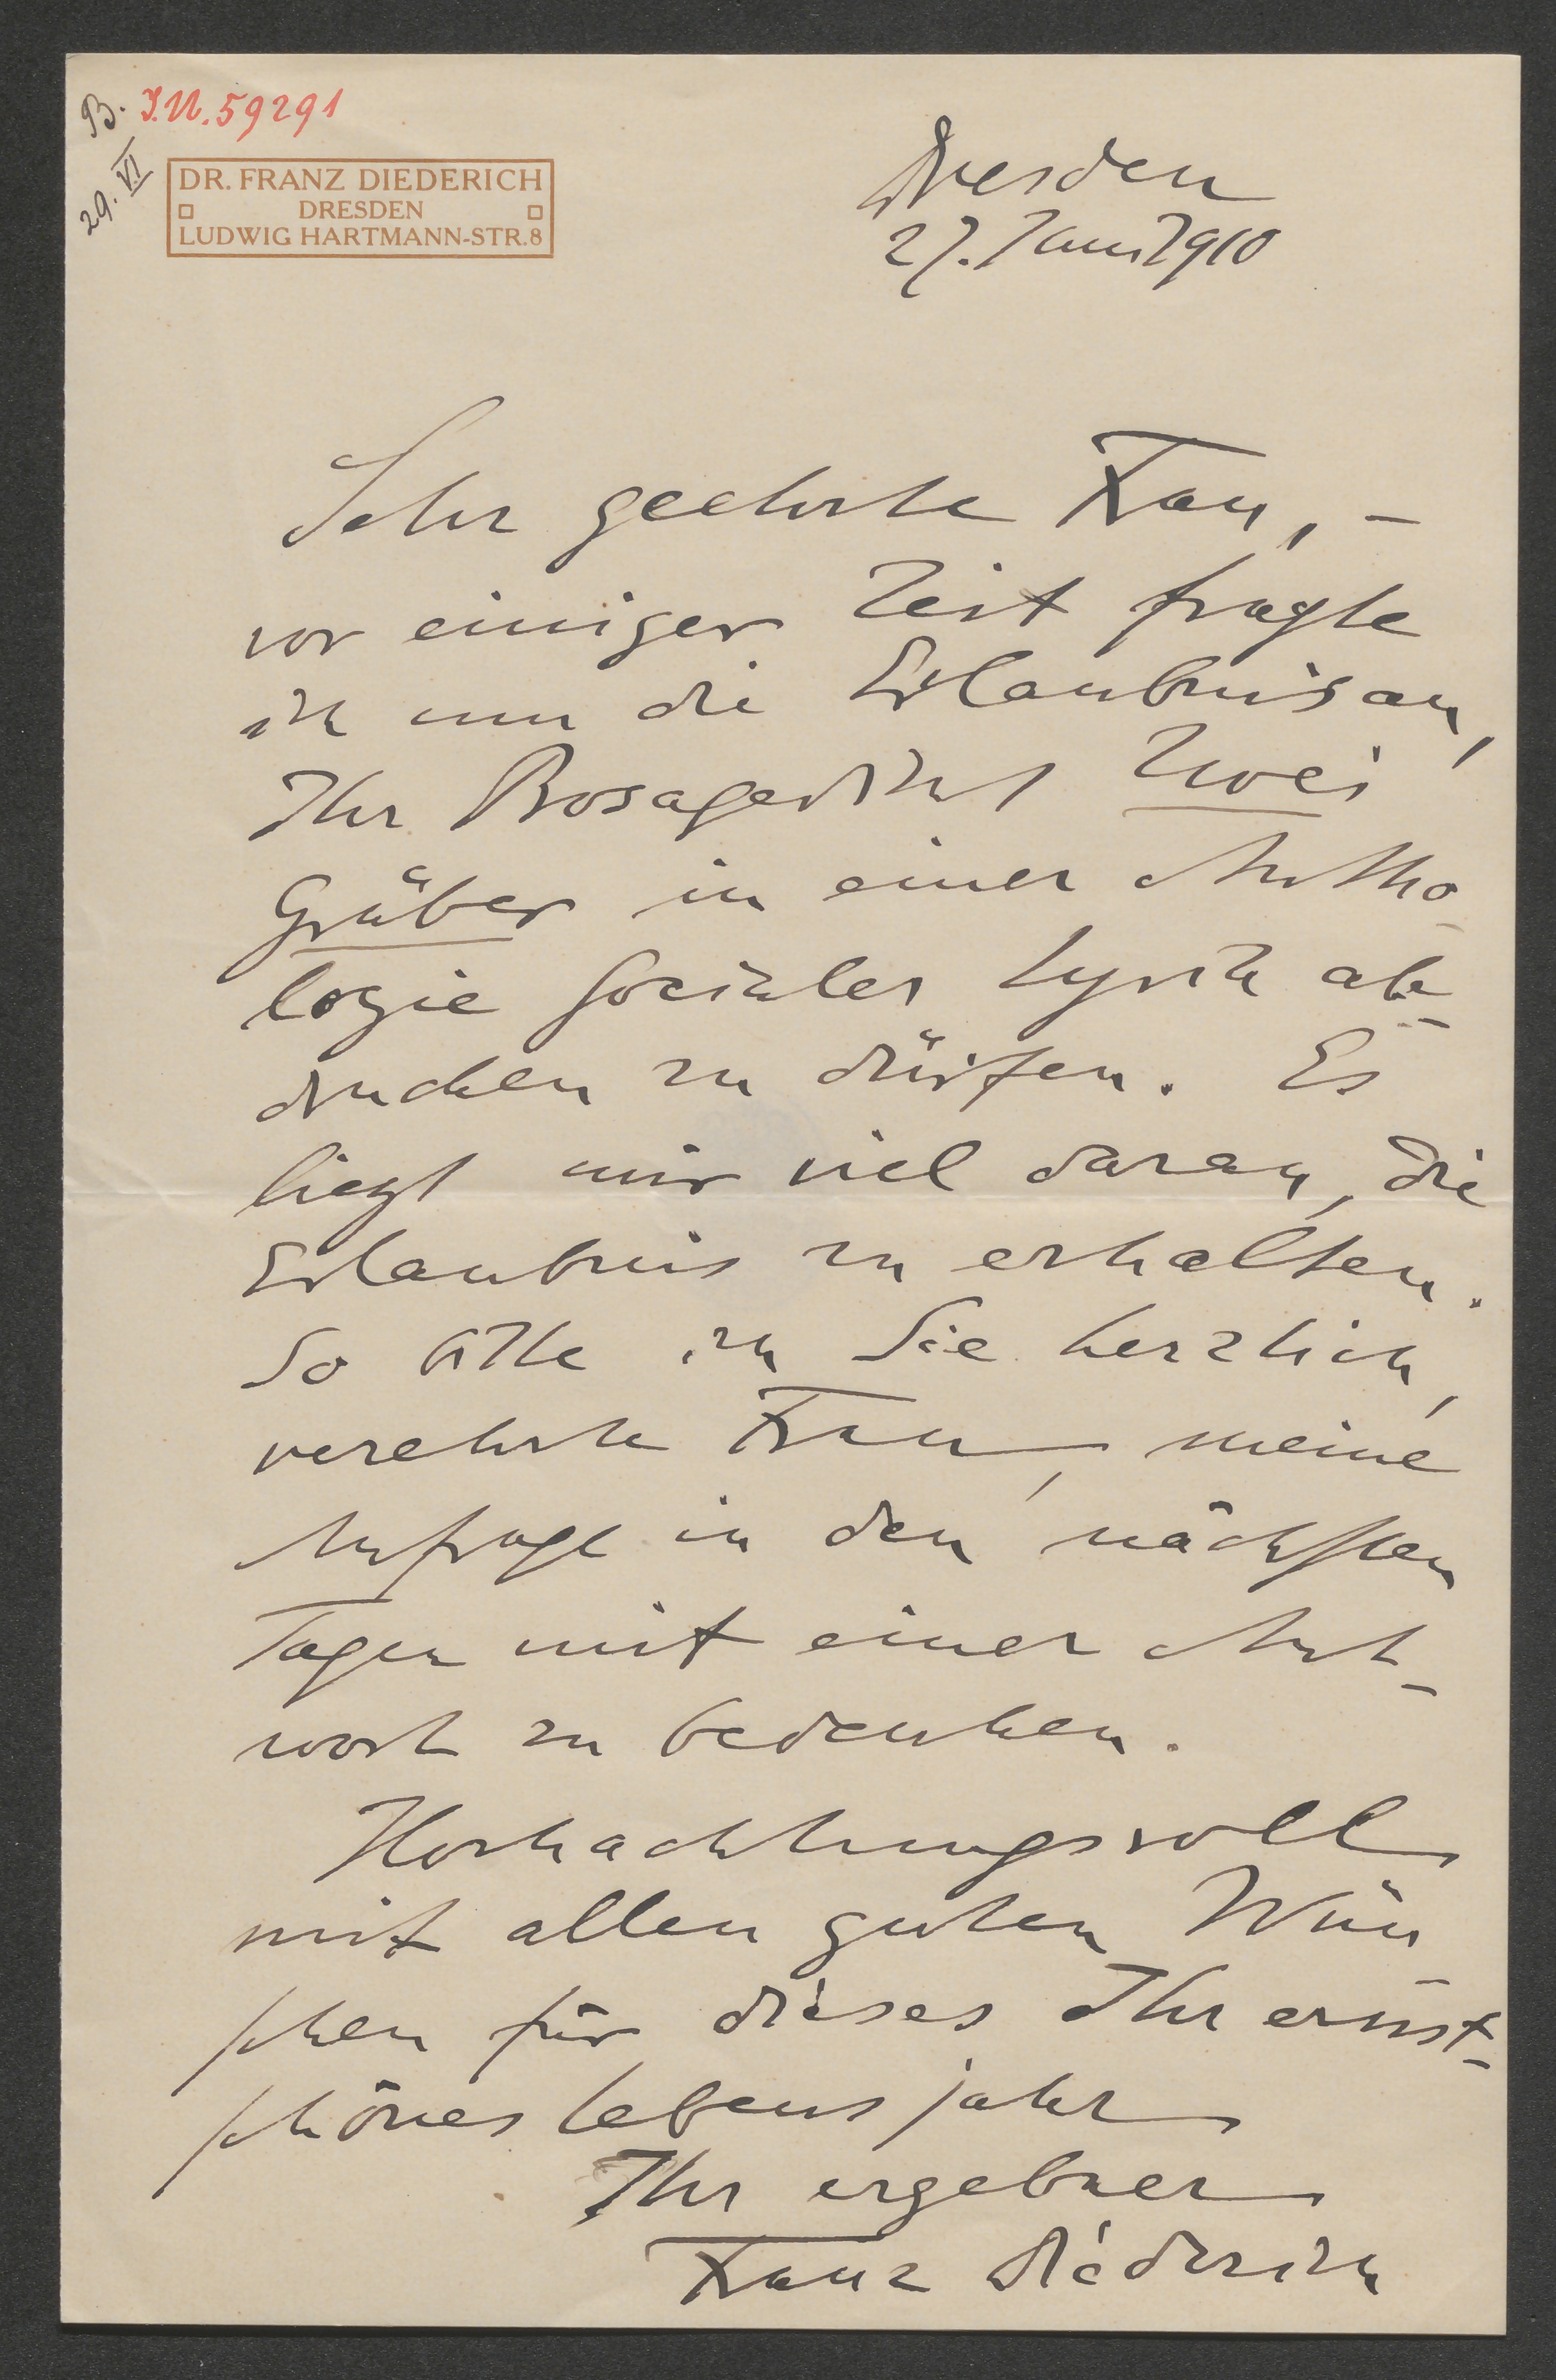 B. I.N. 59291
29. VI
DR. FRANZ DIEDERICH
DRESDEN
LUDWIG HARTMANN-STR. 8
Dresden
27. Juni 1910
Sehr geehrte Frau, –
vor einiger Zeit fragte
ich um die Erlaubnis an,
Ihr Prosagedicht Zwei
Gräber in einer Antho-
logie socialer Lyrik ab-
drucken zu dürfen. Es
liegt mir viel daran, die
Erlaubnis zu erhalten.
So bitte ich Sie herzlich,
verehrte Frau, meine
Anfrage in den nächsten
Tagen mit einer Ant-
wort zu bedenken.
Hochachtungsvoll
mit allen guten Wün-
schen für dieses Ihr ernst-
schönes Lebensjahr
Ihr ergebner
Franz Diederich